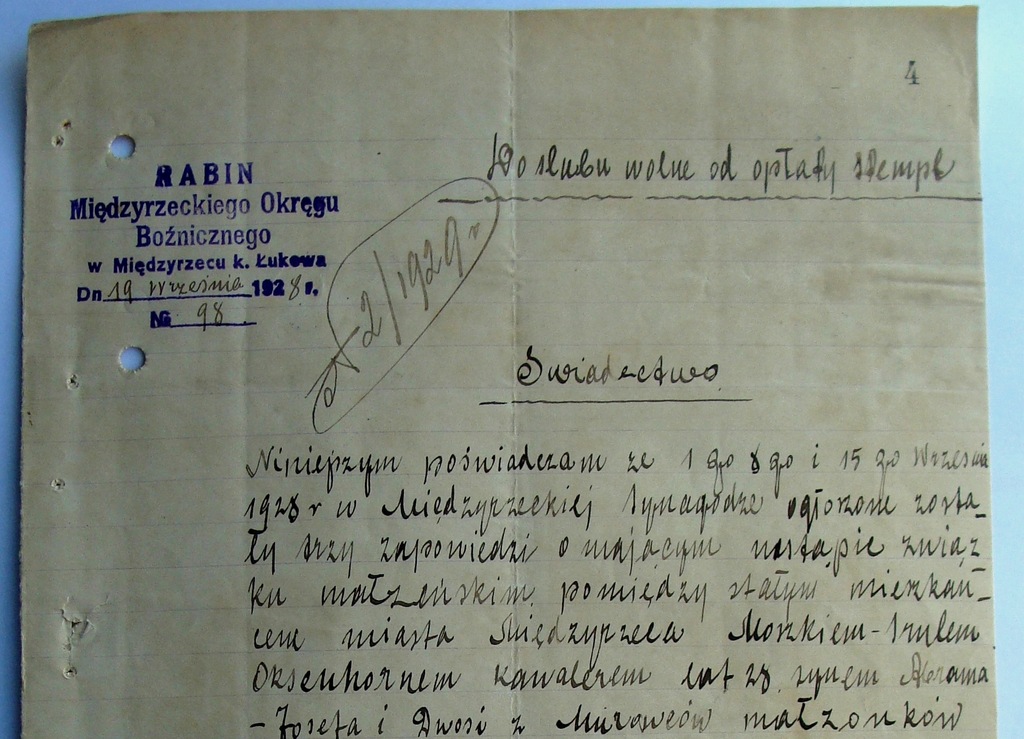 4
Do slubu wolne od opłaty stempl
RABIN
Międzyrzeckiego Okręgu
Boźnicznego
w Międzyrzecu k. Łukowa
Dn 19 Września 1928 r.
№ 98
2/1929 r
Świadectwo
Niniejszym poświadczam ze 1 go 8 go i 15 go Wrześni
1928 r w Międzyrzeckiej Synagodze ogłoszone zosta-
ły trzy zapowiedzi o mającym nastąpic związ
ku małżeńskim pomiędzy stałym mieszkań-
cem miasta Międzyrzeca Moszkiem-Srulem
Oksenhornem kawalerem lat 28 synem Abrama
-Josefa i Dwosi z Murawców małżonków